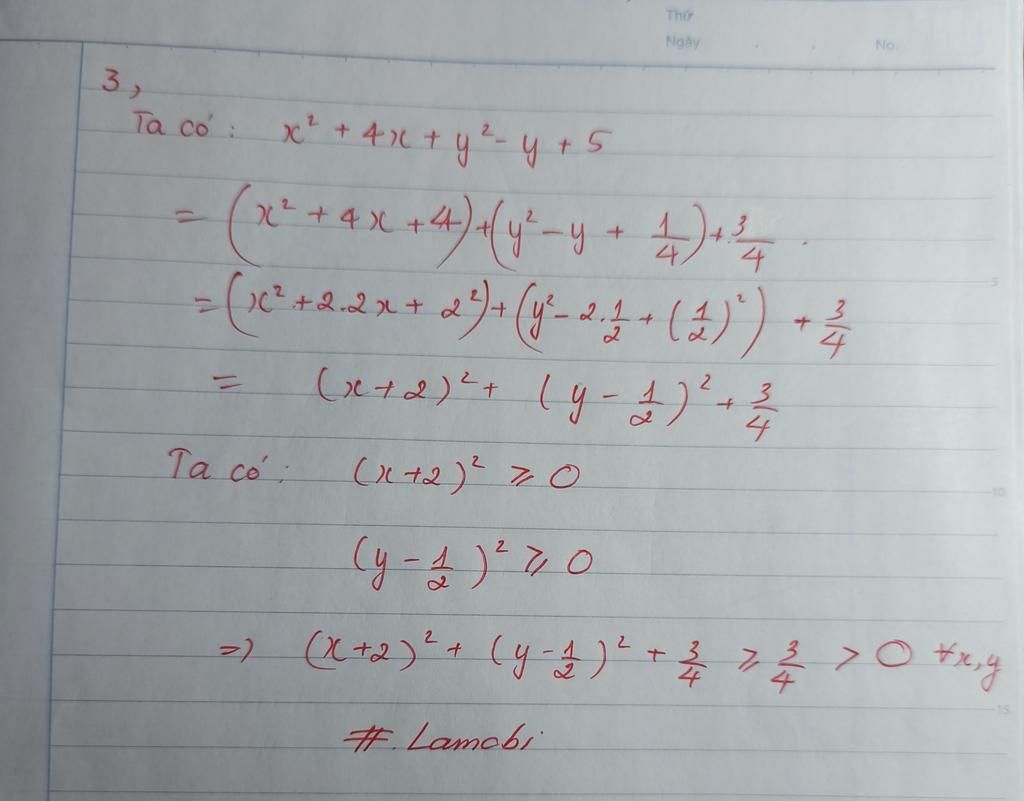 Thứ
Ngày . . No.
3,
Ta có: x² + 4x + y² - y + 5
= (x² + 4x + 4) + (y² - y + 1/4) + 3/4 .
= (x² + 2.2x + 2²) + (y² - 2.1/2 + (1/2)²) + 3/4
= (x+2)² + (y - 1/2)² + 3/4
Ta có: (x+2)² ⩾ 0
(y - 1/2)² ⩾ 0
=> (x+2)² + (y - 1/2)² + 3/4 ⩾ 3/4 > 0 ∀x,y
#. Lamabi
5
10
15